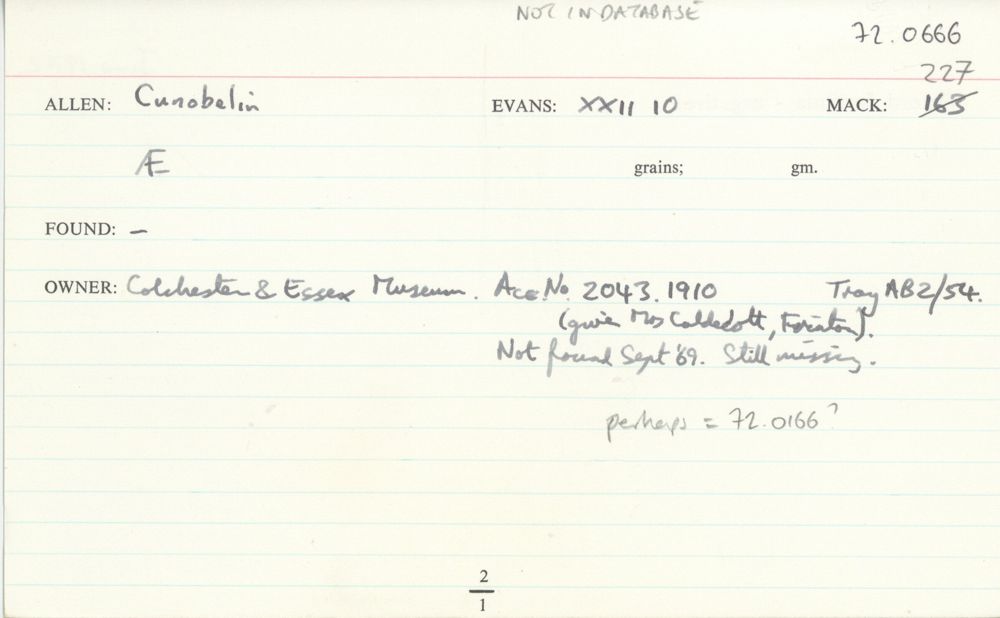 NOT IN DATABASE
72.0666
227
ALLEN: Cunobelin EVANS: XXII 10 MACK: 163
Æ grains; gm.
FOUND: –
OWNER: Colchester & Essex Museum. Acc. No. 2043.1910 Tray AB2/54.
(given Mrs Caldecott, Frinton).
Not found Sept '69. Still missing.
perhaps = 72.0166?
2
1